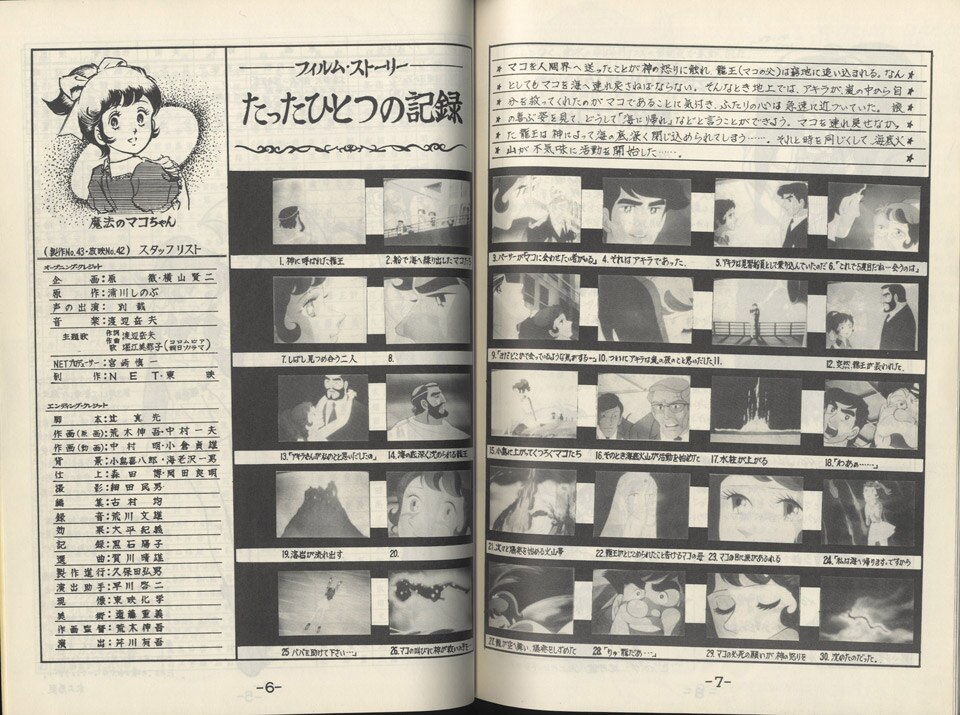 魔法のマコちゃん
(製作No.43・放映No.42) スタッフリスト
オープニング・クレジット
企 画:原 徹・横山賢二
原 作:浦川しのぶ
声の出演:別載
音 楽:渡辺岳夫
主題歌 作詞 作曲 渡辺岳夫
歌 堀江美都子(コロムビア 朝日ソノラマ)
NETプロデューサー:宮崎慎一
制 作:NET・東 映
エンディング・クレジット
脚 本:辻 真先
作画(原画):荒木伸吾・中村一夫
作画(動画):中村 明・小倉貞雄
背 景:小島喜八郎・海老沢一男
仕 上:森田 博・岡田良明
撮 影:細田民男
編 集:古村 均
録 音:荒川文雄
効 果:大平紀義
記 録:黒石陽子
選 曲:賀川晴雄
製作進行:久保田弘男
演出助手:早川啓二
現 像:東映化学
美 術:遠藤重義
作画監督:荒木伸吾
演 出:芹川有吾
フィルム・ストーリー
たったひとつの記録
1. 神に呼ばれた龍王
2. 船で海へ繰り出したマコたち
7. しばし見つめ合う二人
8.
13.「アキラさんが私のことを思いだしたの」
14. 海の底深く沈められる龍王
19. 溶岩が流れ出す
20.
25 パパを助けて下さい…」
26. マコの叫びに神が救いの手を
-6-
* マコを人間界へ送ったことが神の怒りに触れ、龍王(マコの父)は窮地に追い込まれる。なん *
* としてもマコを海へ連れ戻さねばならない。そんなとき地上では、アキラが、嵐の中から自 *
* 分を救ってくれたのがマコであることに気付き、ふたりの心は急速に近づいていた。娘 *
* の喜ぶ姿を見て、どうして「海に帰れ」などと言うことができよう。マコを連れ戻せなか *
* た龍王は神によって海の底深く閉じ込められてしまう……。それと時を同じくして、海底火 *
* 山が不気味に活動を開始した……。 *
3. バーサーがマコに会わせたい者がいる」
4. それはアキラであった。
5. アキラは見習船員として乗り込んでいたのだ
6.「これで5度目だね…会うのは」
9.「前にどこかで会っているような気がする…」
10. ついにアキラは嵐の夜のことを思いだした
11.
12. 突然、龍王が現われた。
15. 小島に上がってくつろぐマコたち
16. そのとき海底火山が活動を始めた
17. 水柱が上がる
18.「わあぁ……」
21. 次々と爆発を始める火山帯
22. 龍王がとじこめられたことを告げるマコの母
23. マコの目に涙があふれる
24.「私は海へ帰ります。ですから
27. 龍が空へ舞い、爆発をしずめた
28.「りゅ 龍だあ…」
29. マコの必死の願いが、神の怒りを
30. 沈めたのだった。
-7-